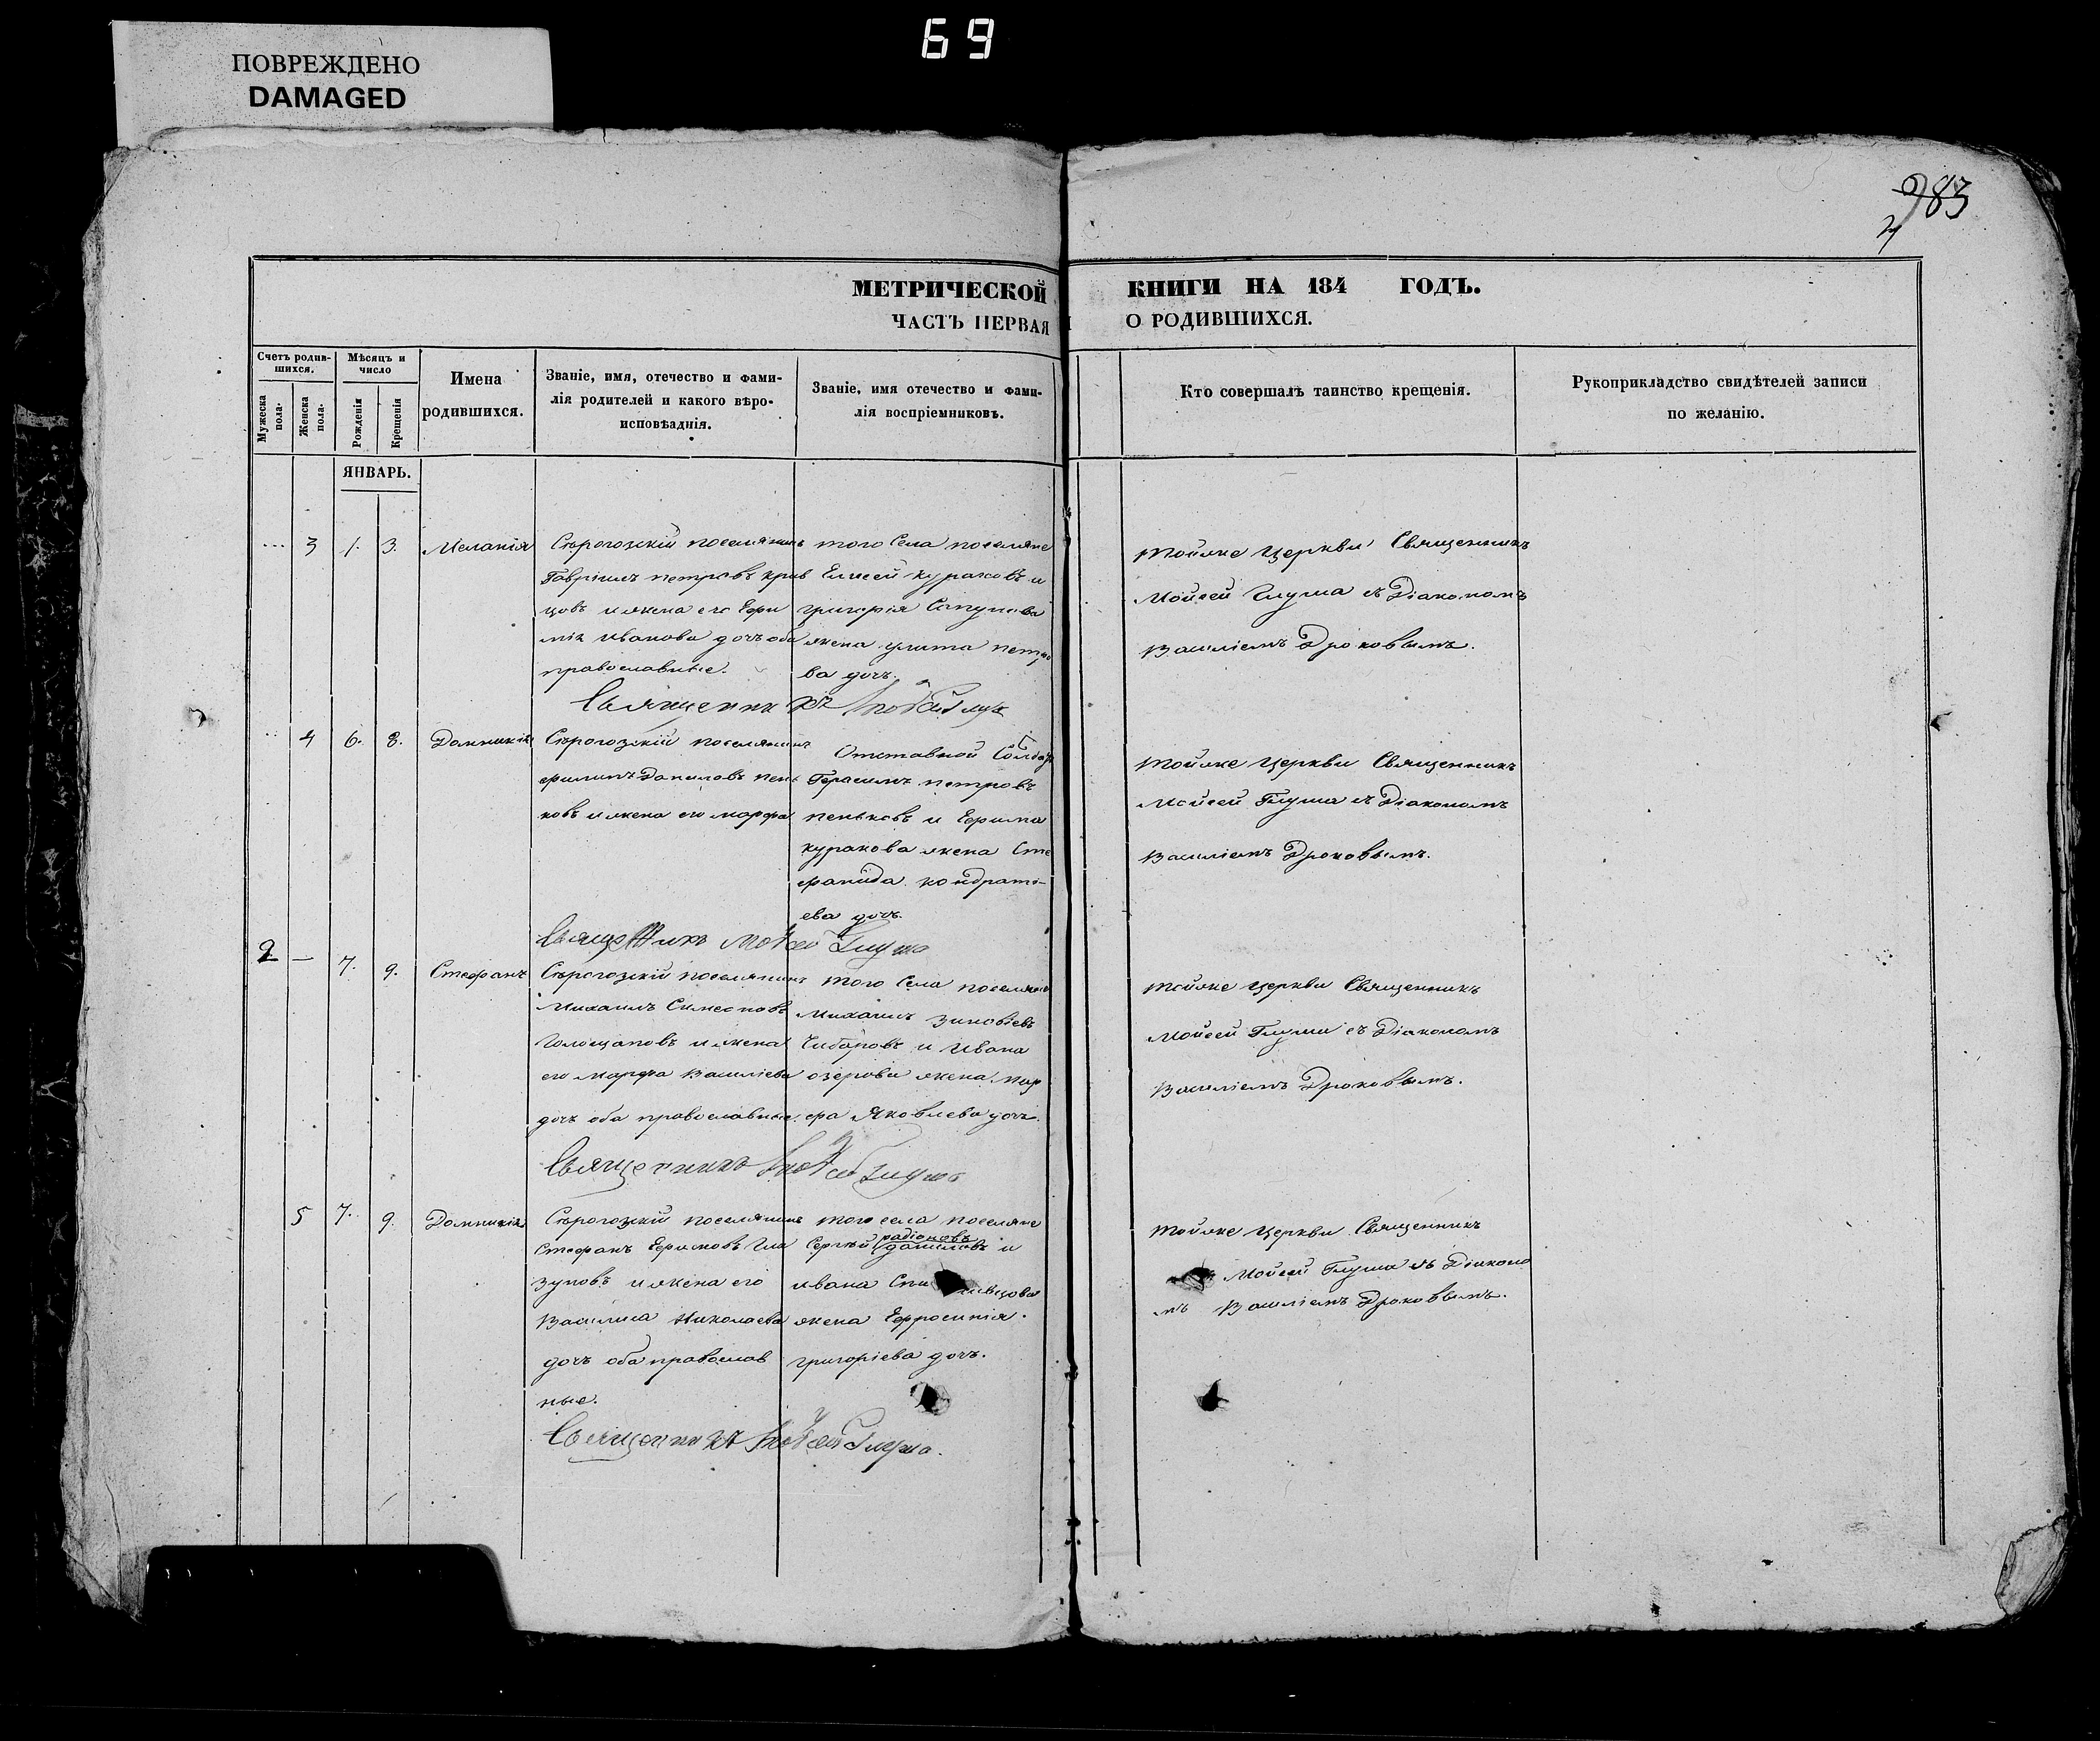 69
ПОВРЕЖДЕНО
DAMAGED
983
МЕТРИЧЕСКОЙ КНИГИ НА 184 ГОДЪ.
ЧАСТЬ ПЕРВАЯ О РОДИВШИХСЯ.
Счетъ родив-
шихся.
Мужеска
пола.
Женска
пола.
Мѣсяцъ и
число
Рожденія
Крещенія
Имена
родившихся.
Званіе, имя, отечество и фами-
лія родителей и какого вѣро-
исповѣданія.
Званіе, имя отечество и фами-
лія воспріемниковъ.
Кто совершалъ таинство крещенія.
Рукоприкладство свидѣтелей записи
по желанію.
ЯНВАРЬ.
3 1. 3. Меланія
Сѣрогозскій поселянинъ
Гавріилъ петровъ крив
цовъ и жена его Ефи
мія иванова дочь оба
православные.
того Села поселяне
Елисей кураковъ и
григорія
жена улита петро
ва дочь.
тойже Церкви Священникъ
Мойсей Глуша съ Діакономъ
Василіемъ Дроковымъ.
Священникъ Мойсей Глуша
4 6. 8. Домникія
Сѣрогозскій поселянинъ
филипъ Даниловъ пень
ковъ и жена его марфа
Отставной Солдатъ
Герасимъ петровъ
пеньковъ и Ефима
куракова жена Сте
фанида кондраті-
ева дочь.
тойже Церкви Священникъ
Мойсей Глуша съ Діакономъ
Василіемъ Дроковымъ.
Священникъ Мойсей Глуша
2 — 7. 9. Стефанъ
Сѣрогозскій поселянинъ
Михаилъ Симеоновъ
Голощаповъ и жена
его марфа Василіева
дочь оба православные.
того Села поселяне
Михаилъ зиновіевъ
и Ивана
озерова жена мар
фа Яковлева дочь.
тойже Церкви Священникъ
Мойсей Глуша съ Діакономъ
Василіемъ Дроковымъ.
Священникъ Мойсей Глуша
5 7. 9. Домникія
Сѣрогозскій поселянинъ
Стефанъ Ефимовъ Гла
зуновъ и жена его
Василиса Николаева
дочь оба православ
ные.
того села поселяне
радіоновъ
Сергѣй даниловъ и
ивана
жена Ефросинія
григоріева дочь.
тойже Церкви Священникъ
Мойсей Глуша съ Діаконо
мъ Василіемъ Дроковымъ.
Священникъ Мойсей Глуша.